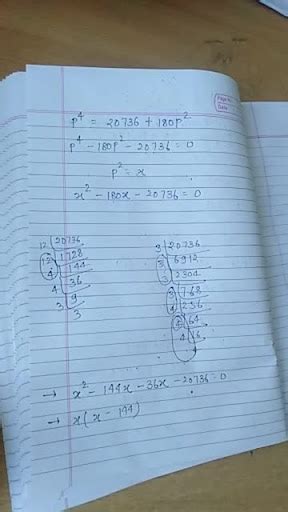 p⁴ = 20736 + 180p²
p⁴ - 180p² - 20736 = 0
p² = x
x² - 180x - 20736 = 0
12 | 20736
12 | 1728
4 | 144
4 | 36
3 | 9
3
3 | 20736
3 | 6912
3 | 2304
3 | 768
4 | 256
4 | 64
4 | 16
4
→ x² - 144x - 36x - 20736 = 0
→ x(x - 144)